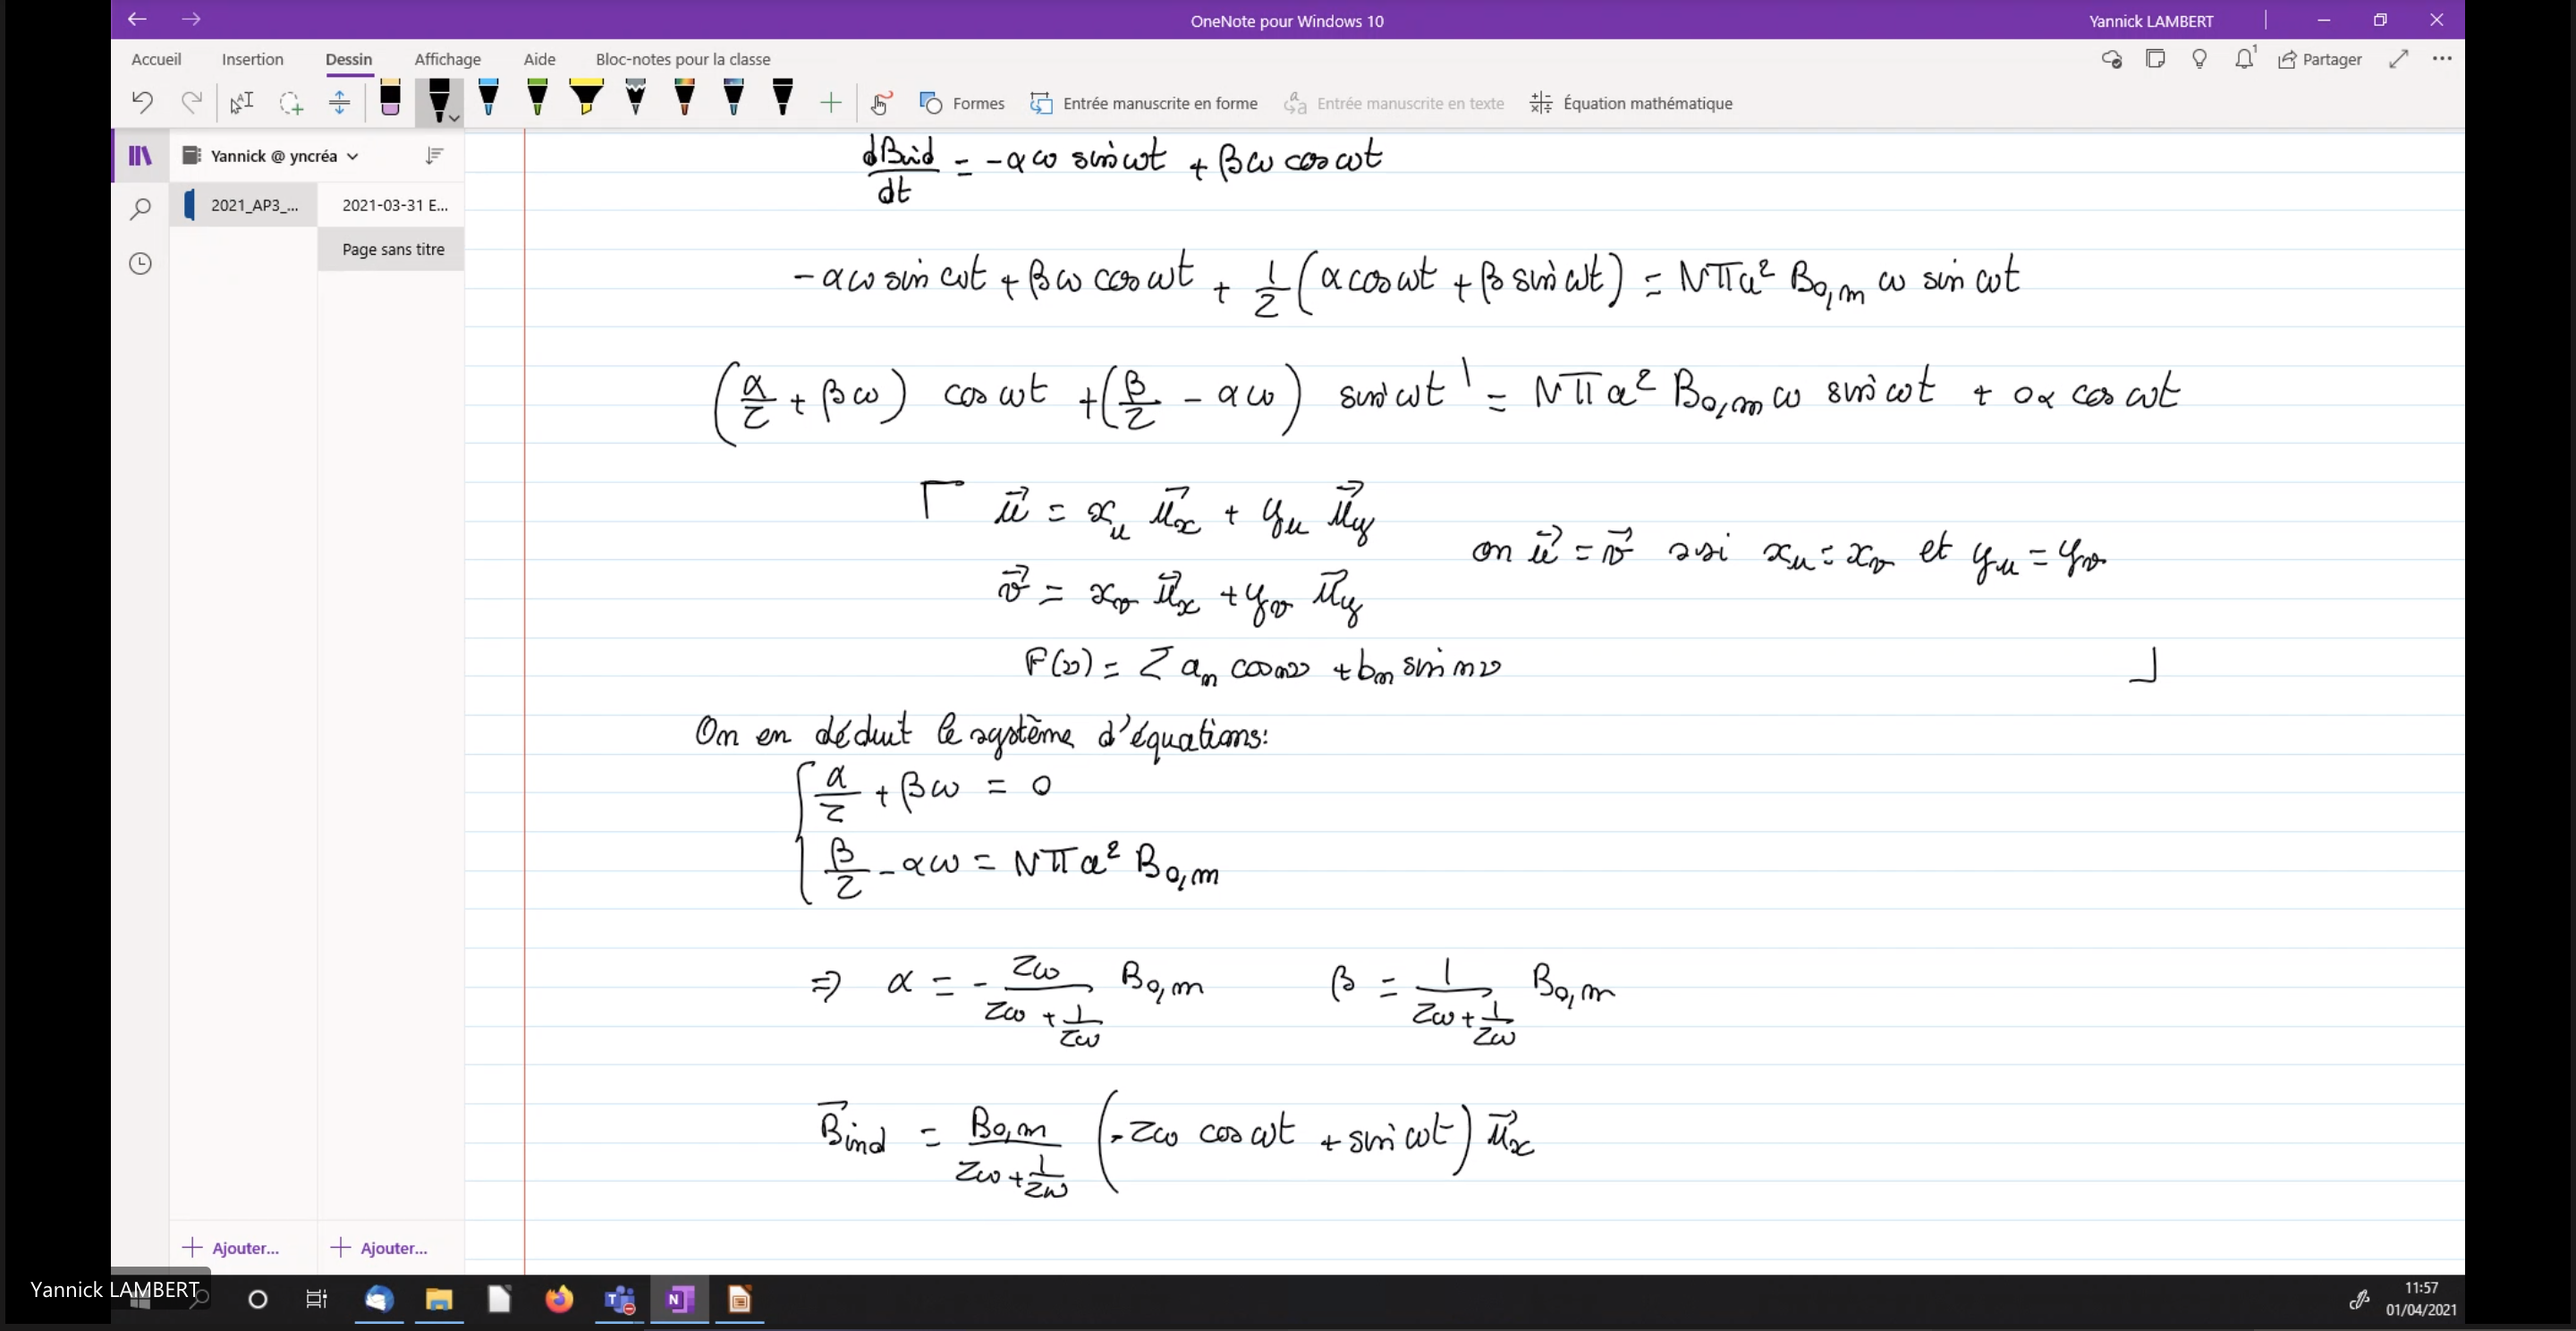 OneNote pour Windows 10
Yannick LAMBERT
Accueil Insertion Dessin Affichage Aide Bloc-notes pour la classe
1 Partager
Formes Entrée manuscrite en forme Entrée manuscrite en texte Équation mathématique
Yannick @ yncréa
2021_AP3_...
2021-03-31 E...
Page sans titre
dBind/dt = -αω sin ωt + βω cos ωt
-αω sin ωt + βω cos ωt + 1/τ (α cos ωt + β sin ωt) = Nπa² B0,m ω sin ωt
(α/τ + βω) cos ωt + (β/τ - αω) sin ωt = Nπa² B0,m ω sin ωt + 0x cos ωt
u⃗ = xu u⃗x + yu u⃗y
on u⃗ = v⃗ ssi xu = xv et yu = yv
v⃗ = xv u⃗x + yv u⃗y
F(ν) = Σ an cos nν + bn sin nν
On en déduit le système d'équations:
α/τ + βω = 0
β/τ - αω = Nπa² B0,m
⇒ α = - τω/(τω + 1/τω) B0,m β = 1/(τω + 1/τω) B0,m
B⃗ind = B0,m/(τω + 1/τω) (-τω cos ωt + sin ωt) u⃗x
Ajouter... Ajouter...
Yannick LAMBERT
11:57
01/04/2021